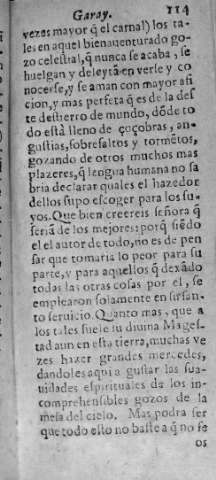 Garay. 114
vezes mayor q̃ el carnal) los ta-
les en aquel bienauenturado go-
zo celestial, q̃ nunca se acaba, se
huelgan y deleytã en verle y co
nocerse, y se aman con mayor afi
cion, y mas perfeta q̃ es de la des
te destierro de mundo, dõde to
do està lleno de çoçobras, an-
gustias, sobresaltos y tormẽtos,
gozando de otros muchos mas
plazeres, q̃ lengua humana no sa
bria declarar quales el hazedor
dellos supo escoger para los su-
yos. Que bien creereis señora q̃
seriã de los mejores: porq̃ siẽdo
el el autor de todo, no es de pen
sar que tomaria lo peor para su
parte, y para aquellos q̃ dexãdo
todas las otras cosas por el, se
emplearon solamente en su san-
to seruicio. Quanto mas, que a
los tales suele su diuina Mages-
tad aun en esta tierra, muchas ve
zes hazer grandes mercedes,
dandoles aqui a gustar las sua-
uidades espirituales de los in-
comprehensibles gozos de la
mesa del cielo. Mas podra ser
que todo esto no baste a q̃ no se
os